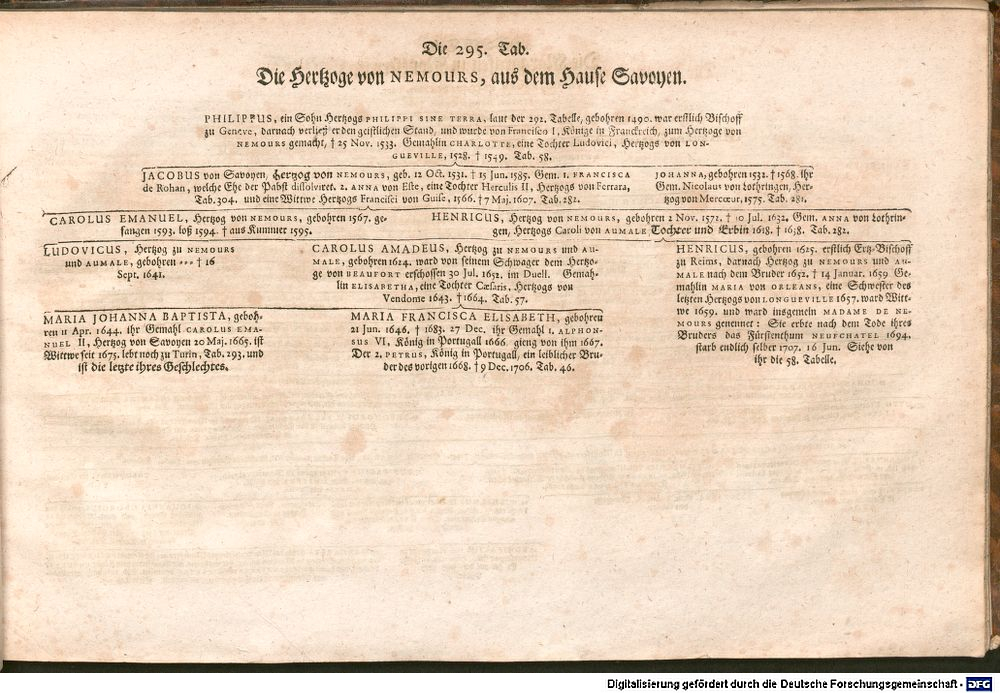 Die 295. Tab.
Die Hertzoge von NEMOURS, aus dem Hause Savoyen.
PHILIPPUS, ein Sohn Hertzogs PHILIPPI SINE TERRA, laut der 292. Tabelle, gebohren 1490. war erstlich Bischoff
zu Geneve, darnach verließ er den geistlichen Stand, und wurde von Francisco I, Könige in Franckreich, zum Hertzoge von
NEMOURS gemacht, † 25 Nov. 1533. Gemahlin CHARLOTTE, eine Tochter Ludovici, Hertzogs von LON-
GUEVILLE, 1528. † 1549. Tab. 58.
JACOBUS von Savoyen, Hertzog von NEMOURS, geb. 12 Oct. 1531. † 15 Jun. 1585. Gem. 1. FRANCISCA
de Rohan, welche Ehe der Pabst dissolviret. 2. ANNA von Este, eine Tochter Herculis II, Hertzogs von Ferrara,
Tab. 304. und eine Wittwe Hertzogs Francisci von Guise, 1566. † 7 Maj. 1607. Tab. 282.
JOHANNA, gebohren 1532. † 1568. Ihr
Gem. Nicolaus von Lothringen, Her-
tzog von Mercœur, 1575. Tab. 281.
CAROLUS EMANUEL, Hertzog von NEMOURS, gebohren 1567. ge-
fangen 1593. loß 1594. † aus Kummer 1595.
HENRICUS, Hertzog von NEMOURS, gebohren 2 Nov. 1572. † 10 Jul. 1632. Gem. ANNA von Lothrin-
gen, Hertzogs Caroli von AUMALE Tochter und Erbin 1618. † 1638. Tab. 282.
LUDOVICUS, Hertzog zu NEMOURS
und AUMALE, gebohren ... † 16
Sept. 1641.
CAROLUS AMADEUS, Hertzog zu NEMOURS und AU-
MALE, gebohren 1624. ward von seinem Schwager dem Hertzo-
ge von BEAUFORT erschossen 30 Jul. 1652. im Duell. Gemah-
lin ELISABETHA, eine Tochter Cæsaris, Hertzogs von
Vendome 1643. † 1664. Tab. 57.
HENRICUS, gebohren 1625. erstlich Ertz-Bischoff
zu Reims, darnach Hertzog zu NEMOURS und AU-
MALE nach dem Bruder 1652. † 14 Januar. 1659 Ge-
mahlin MARIA von ORLEANS, eine Schwester des
letzten Hertzogs von LONGUEVILLE 1657. ward Witt-
we 1659. und ward insgemein MADAME DE NE-
MOURS genennet: Sie erbte nach dem Tode ihres
Bruders das Fürstenthum NEUFCHATEL 1694.
starb endlich selber 1707. 16 Jun. Siehe von
ihr die 58. Tabelle.
MARIA JOHANNA BAPTISTA, geboh-
ren 11 Apr. 1644. ihr Gemahl CAROLUS EMA-
NUEL II, Hertzog von Savoyen 20 Maj. 1665. ist
Wittwe seit 1675. lebt noch zu Turin, Tab. 293. und
ist die letzte ihres Geschlechtes.
MARIA FRANCISCA ELISABETH, gebohren
21 Jun. 1646, † 1683. 27 Dec. ihr Gemahl 1. ALPHON-
SUS VI, König in Portugall 1666. gieng von ihm 1667.
Der 2. PETRUS, König in Portugall, ein leiblicher Bru-
der des vorigen 1668. † 9 Dec. 1706. Tab. 46.
Digitalisierung gefördert durch die Deutsche Forschungsgemeinschaft - DFG